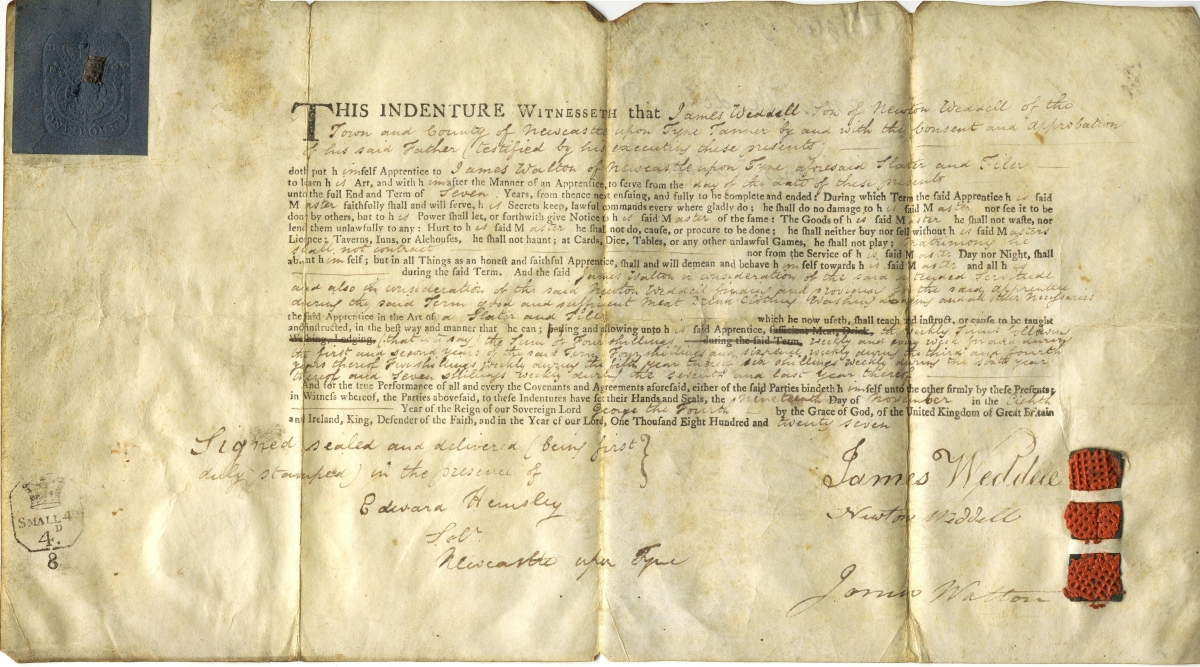 THIS INDENTURE WITNESSETH that James Weddell Son of Newton Weddell of the
Town and County of Newcastle upon Tyne Tanner by and with the Consent and approbation
of his said Father (testified by his executing these presents)
doth put himself Apprentice to James Walton of Newcastle upon Tyne aforesaid Slater and Tiler
to learn his Art, and with him after the Manner of an Apprentice, to serve from the day of the date of these presents
unto the full End and Term of Seven Years, from thence next ensuing, and fully to be complete and ended: During which Term the said Apprentice his said
Master faithfully shall and will serve, his Secrets keep, lawful commands every where gladly do; he shall do no damage to his said Master nor see it to be
done by others, but to his Power shall let, or forthwith give Notice to his said Master of the same: The Goods of his said Master he shall not waste, nor
lend them unlawfully to any: Hurt to his said Master he shall not do, cause, or procure to be done; he shall neither buy nor sell without his said Masters
Licence; Taverns, Inns, or Alehouses, he shall not haunt; at Cards, Dice, Tables, or any other unlawful Games, he shall not play; Matrimony he
shall not contract nor from the Service of his said Master Day nor Night, shall
absent himself; but in all Things as an honest and faithful Apprentice, shall and will demean and behave himself towards his said Master and all his
during the said Term. And the said James Walton in consideration of the said intended Servitude
and also in consideration of the said Newton Weddell finding and providing for the said apprentice
during the said Term good and sufficient Meat Drink Clothing Washing Lodging and all other Necessaries
the said Apprentice in the Art of a Slater and Tiler which he now useth, shall teach and instruct, or cause to be taught
and instructed, in the best way and manner that he can; paying and allowing unto his said Apprentice, sufficient Meat, Drink, the weekly Sums following
Washing, Lodging, (that is to say) the Sum of Four shillings during the said Term, weekly and every week for and during
the first and second years of the said Term Four shillings and sixpence weekly during the third and fourth
years thereof Five shillings weekly during the fifth year thereof Six shillings weekly during the sixth year
thereof and Seven Shillings weekly during the Seventh and last Year thereof
And for the true Performance of all and every the Covenants and Agreements aforesaid, either of the said Parties bindeth himself unto the other firmly by these Presents;
in Witness whereof, the Parties abovesaid, to these Indentures have set their Hands and Seals, the Nineteenth Day of November in the Eighth
Year of the Reign of our Sovereign Lord George the Fourth by the Grace of God, of the United Kingdom of Great Britain
and Ireland, King, Defender of the Faith, and in the Year of our Lord, One Thousand Eight Hundred and twenty seven
Signed sealed and delivered (being first
duly stamped) in the presence of
Edward Hemsley
Solr.
Newcastle upon Tyne
James Weddell
Newton Weddell
James Walton
SMALL 4
4D.
8